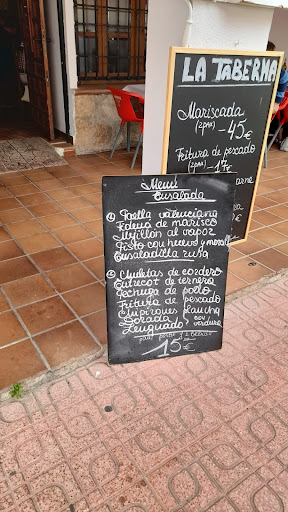 LA TABERNA
Mariscada
(2prs) -45€
Fritura de
pescado
(2prs) -17€
carne
Menú
Ensalada
1 Paella valenciana
Fideuá de marisco
Mejillon al vapor
Pisto con huevo y
Ensaladilla rusa
2 Chuletas de cordero
Entrecot de ternera
Pechuga de pollo
Fritura de pescado
Chipirones plancha
Dorada con
Lenguado verdura
pan, postre y 1 bebida
15€